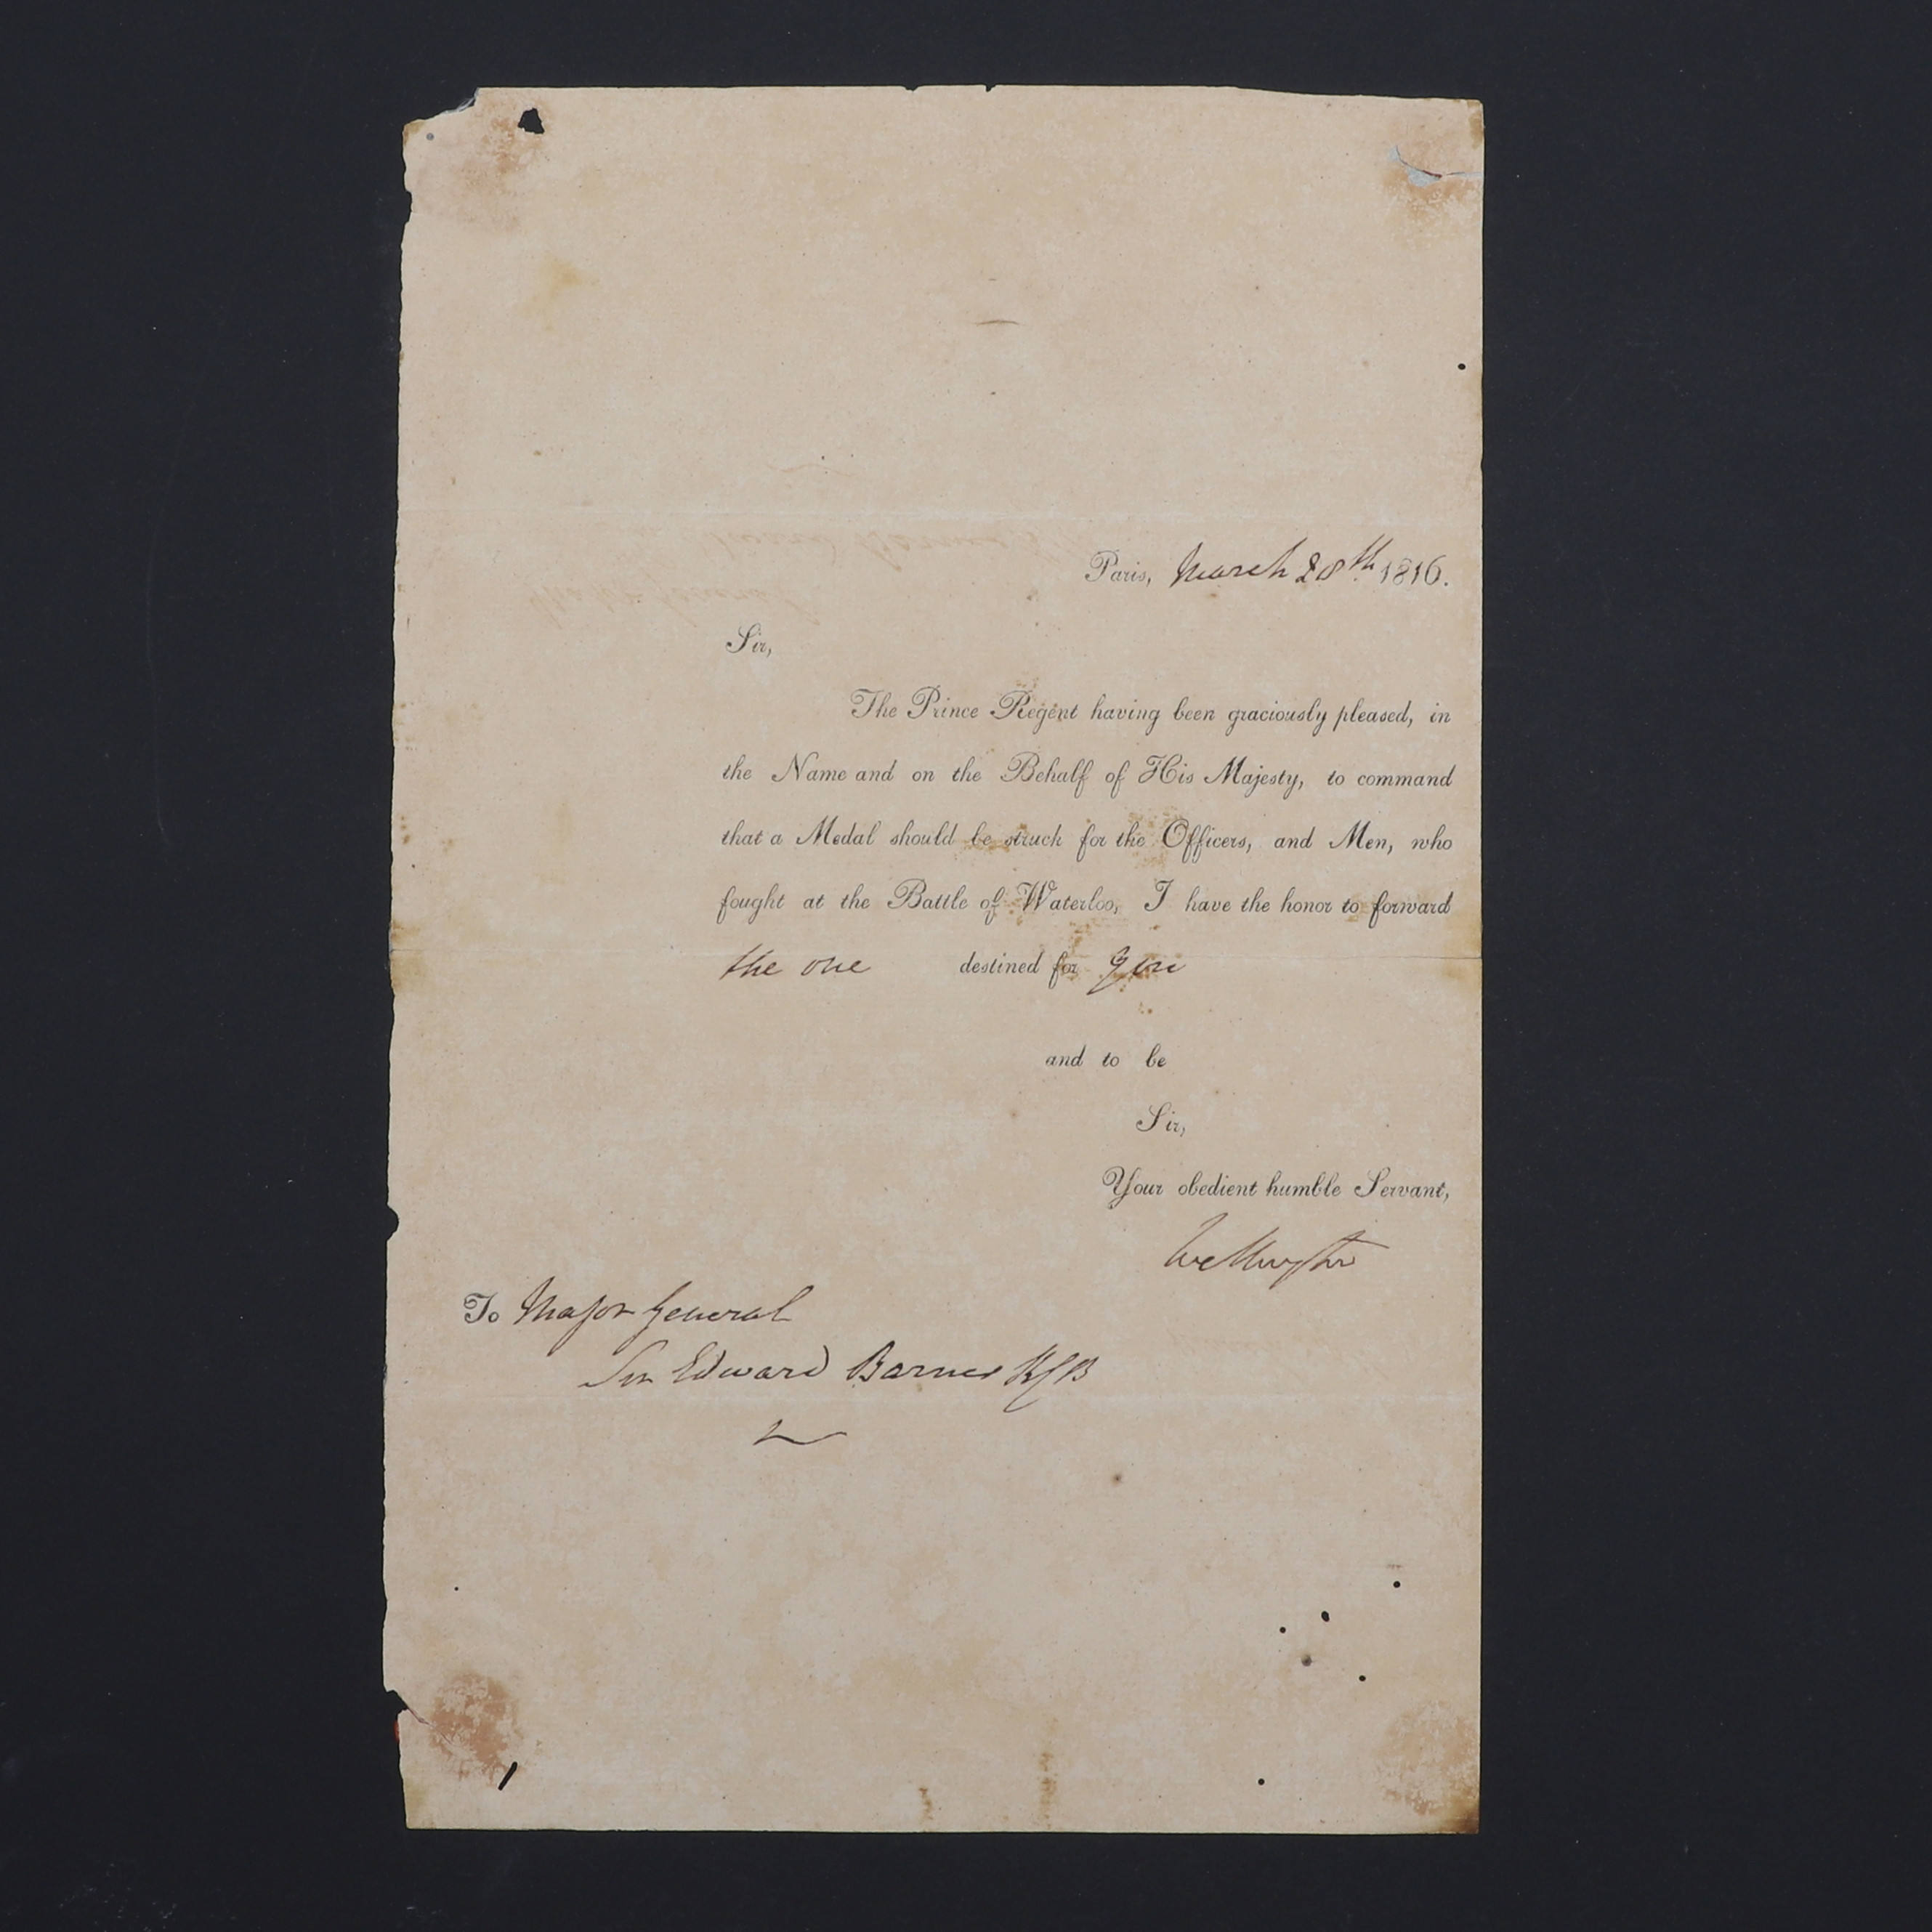 Paris, March 28th 1816.
Sir,
The Prince Regent having been graciously pleased, in
the Name and on the Behalf of His Majesty, to command
that a Medal should be struck for the Officers, and Men, who
fought at the Battle of Waterloo, I have the honor to forward
the one destined for you
and to be
Sir,
Your obedient humble Servant,
Wellington
To Major General
Sir Edward Barnes KCB